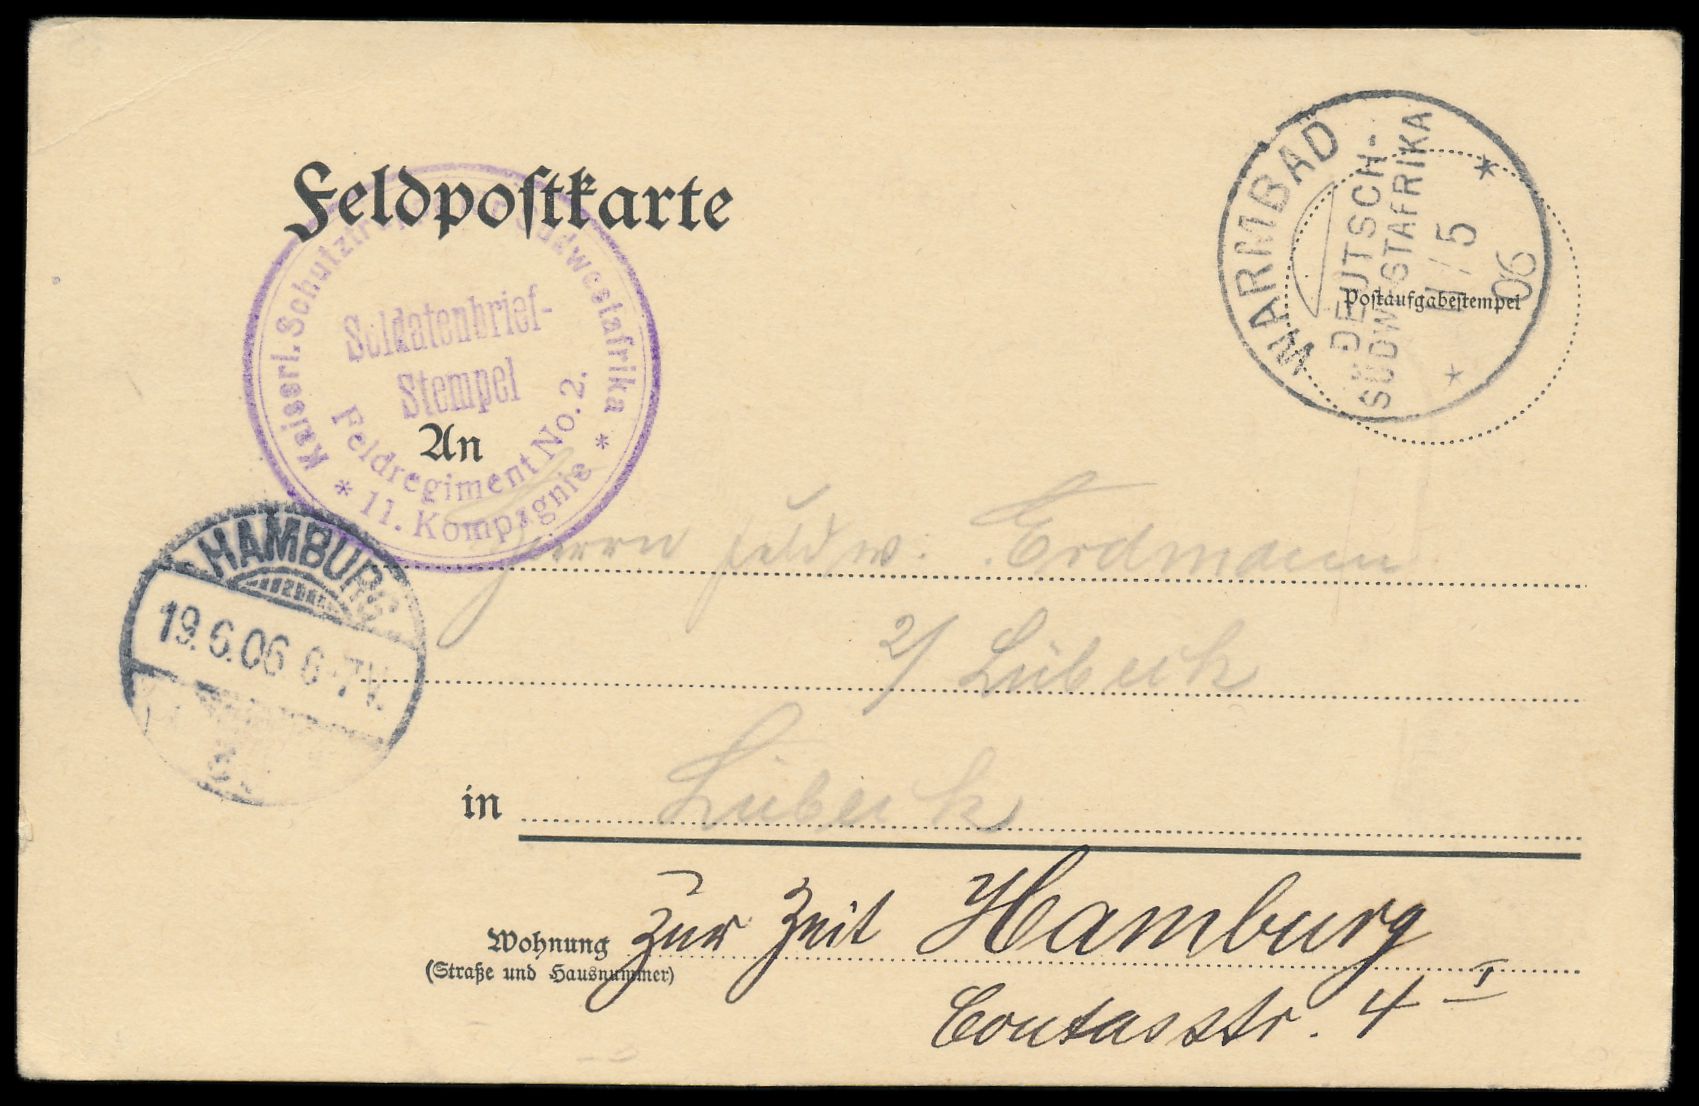 Feldpostkarte
Kaiserl. Schutztruppe Südwestafrika
Soldatenbrief-
Stempel
Feldregiment No. 2.
* 11. Kompagnie *
WARMBAD
DEUTSCH-
SÜDWESTAFRIKA
/5
06
Postaufgabestempel
An
HAMBURG
19.6.06 6-7V.
Herrn Feldw. Erdmann
2/ Lübeck
in Lübeck
Wohnung zur Zeit Hamburg
(Straße und Hausnummer)
4 I